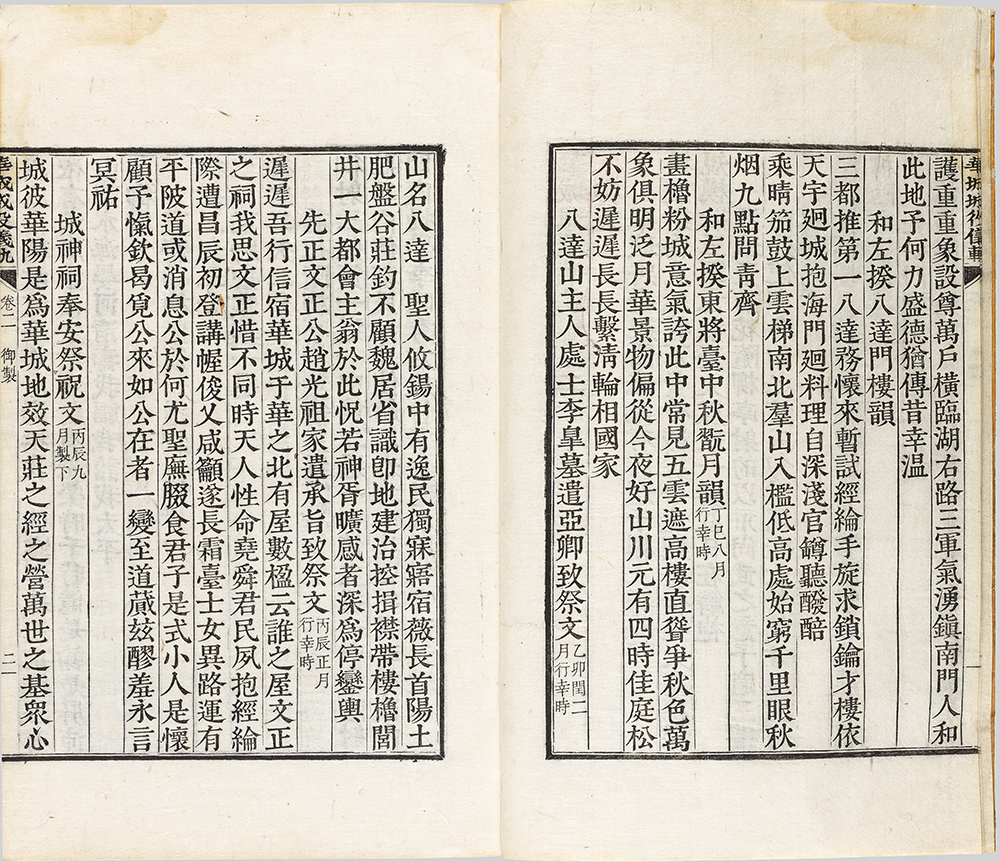 護重重象設尊萬戶橫臨湖右路三軍氣湧鎮南門人和
此地予何力盛德猶傳昔幸溫
和左揆八達門樓韻
三都推第一八達務懷來暫試經綸手旋求鎖鑰才樓依
天宇廻城抱海門廻料理自深淺官罇聽醱醅
乘晴笳鼓上雲梯南北羣山入檻低高處始窮千里眼秋
烟九點問靑齊
和左揆東將臺中秋翫月韻丁巳八月行幸時
畫櫓粉城意氣誇此中常見五雲遮高樓直聳爭秋色萬
象俱明泛月華景物偏從今夜好山川元有四時佳庭松
不妨遲遲長長繫淸輪相國家
八達山主人處士李皐墓遣亞卿致祭文乙卯閏二月行幸時
山名八達 聖人攸錫中有逸民獨寐寤宿薇長首陽土
肥盤谷莊釣不顧魏居省識卽地建治控揖襟帶樓櫓閭
井一大都會主翁於此怳若神胥曠感者深爲停鑾輿
先正文正公趙光祖家遣承旨致祭文丙辰正月行幸時
遲遲吾行信宿華城于華之北有屋數楹云誰之屋文正
之祠我思文正惜不同時天人性命堯舜君民夙抱經綸
際遭昌辰初登講幄俊乂咸籲遂長霜臺士女異路運有
平陂道或消息公於何尤聖廡腏食君子是式小人是懷
顧予愾欽曷覓公來如公在者一變至道蕆玆醪羞永言
冥祐
城神祠奉安祭祝文丙辰九月製下
城彼華陽是爲華城地效天莊之經之營萬世之基衆心
卷二 御製
二